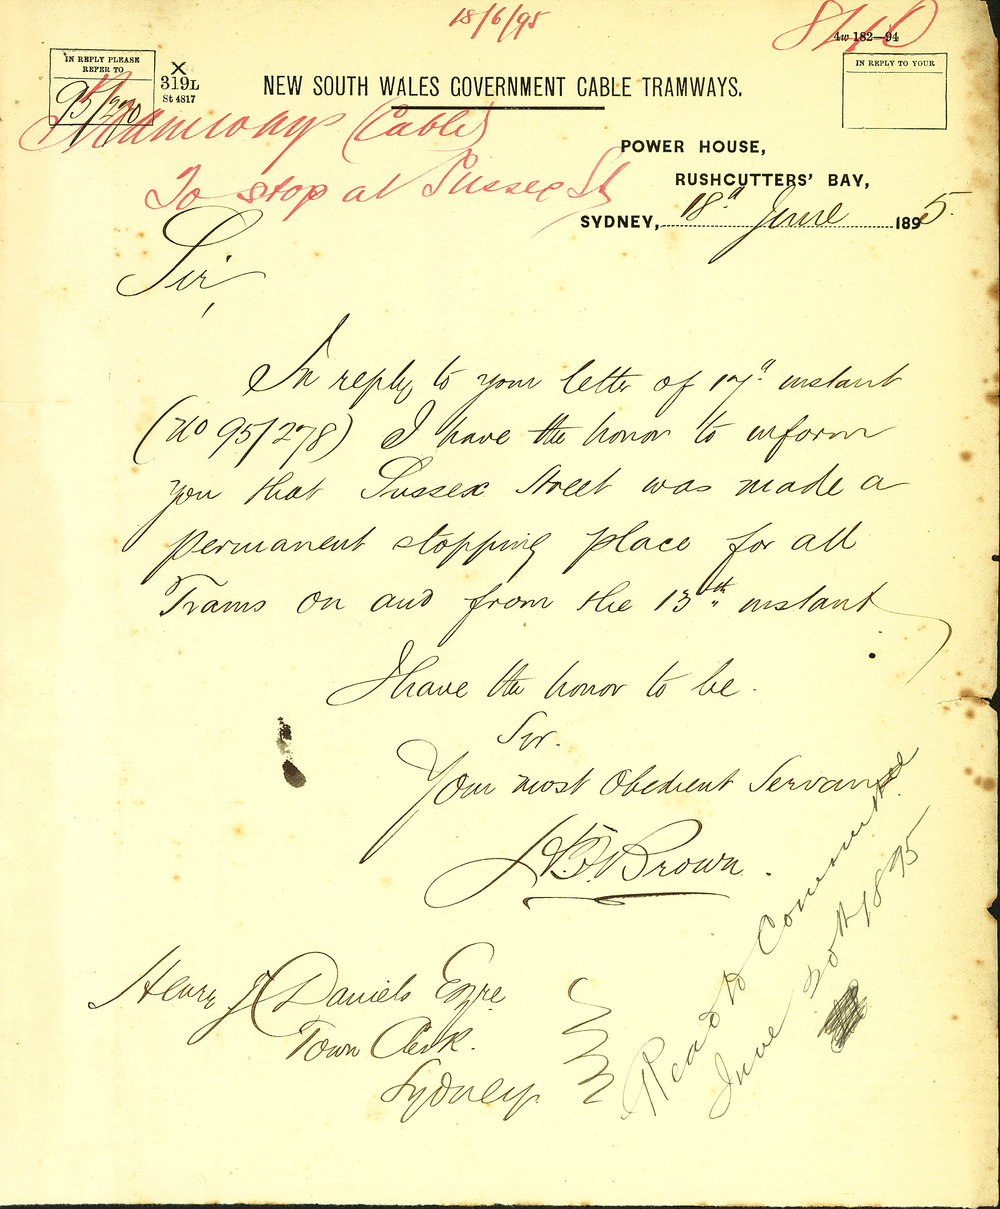 18/6/95
4w 182—94
IN REPLY PLEASE
REFER TO
X
319L
St 4817
NEW SOUTH WALES GOVERNMENT CABLE TRAMWAYS.
IN REPLY TO YOUR
Tramways (Cable)
To stop at Sussex St
POWER HOUSE,
RUSHCUTTERS' BAY,
SYDNEY, 18th June 1895.
Sir,
In reply to your letter of 17th instant
(No 95/278) I have the honor to inform
you that Sussex Street was made a
permanent stopping place for all
Trams on and from the 13th instant
I have the honor to be.
Sir.
Your most Obedient Servant
Brown.
Henry J Daniels Esqre
Town Clerk.
Sydney.
Read to Committee
June 20th 1895